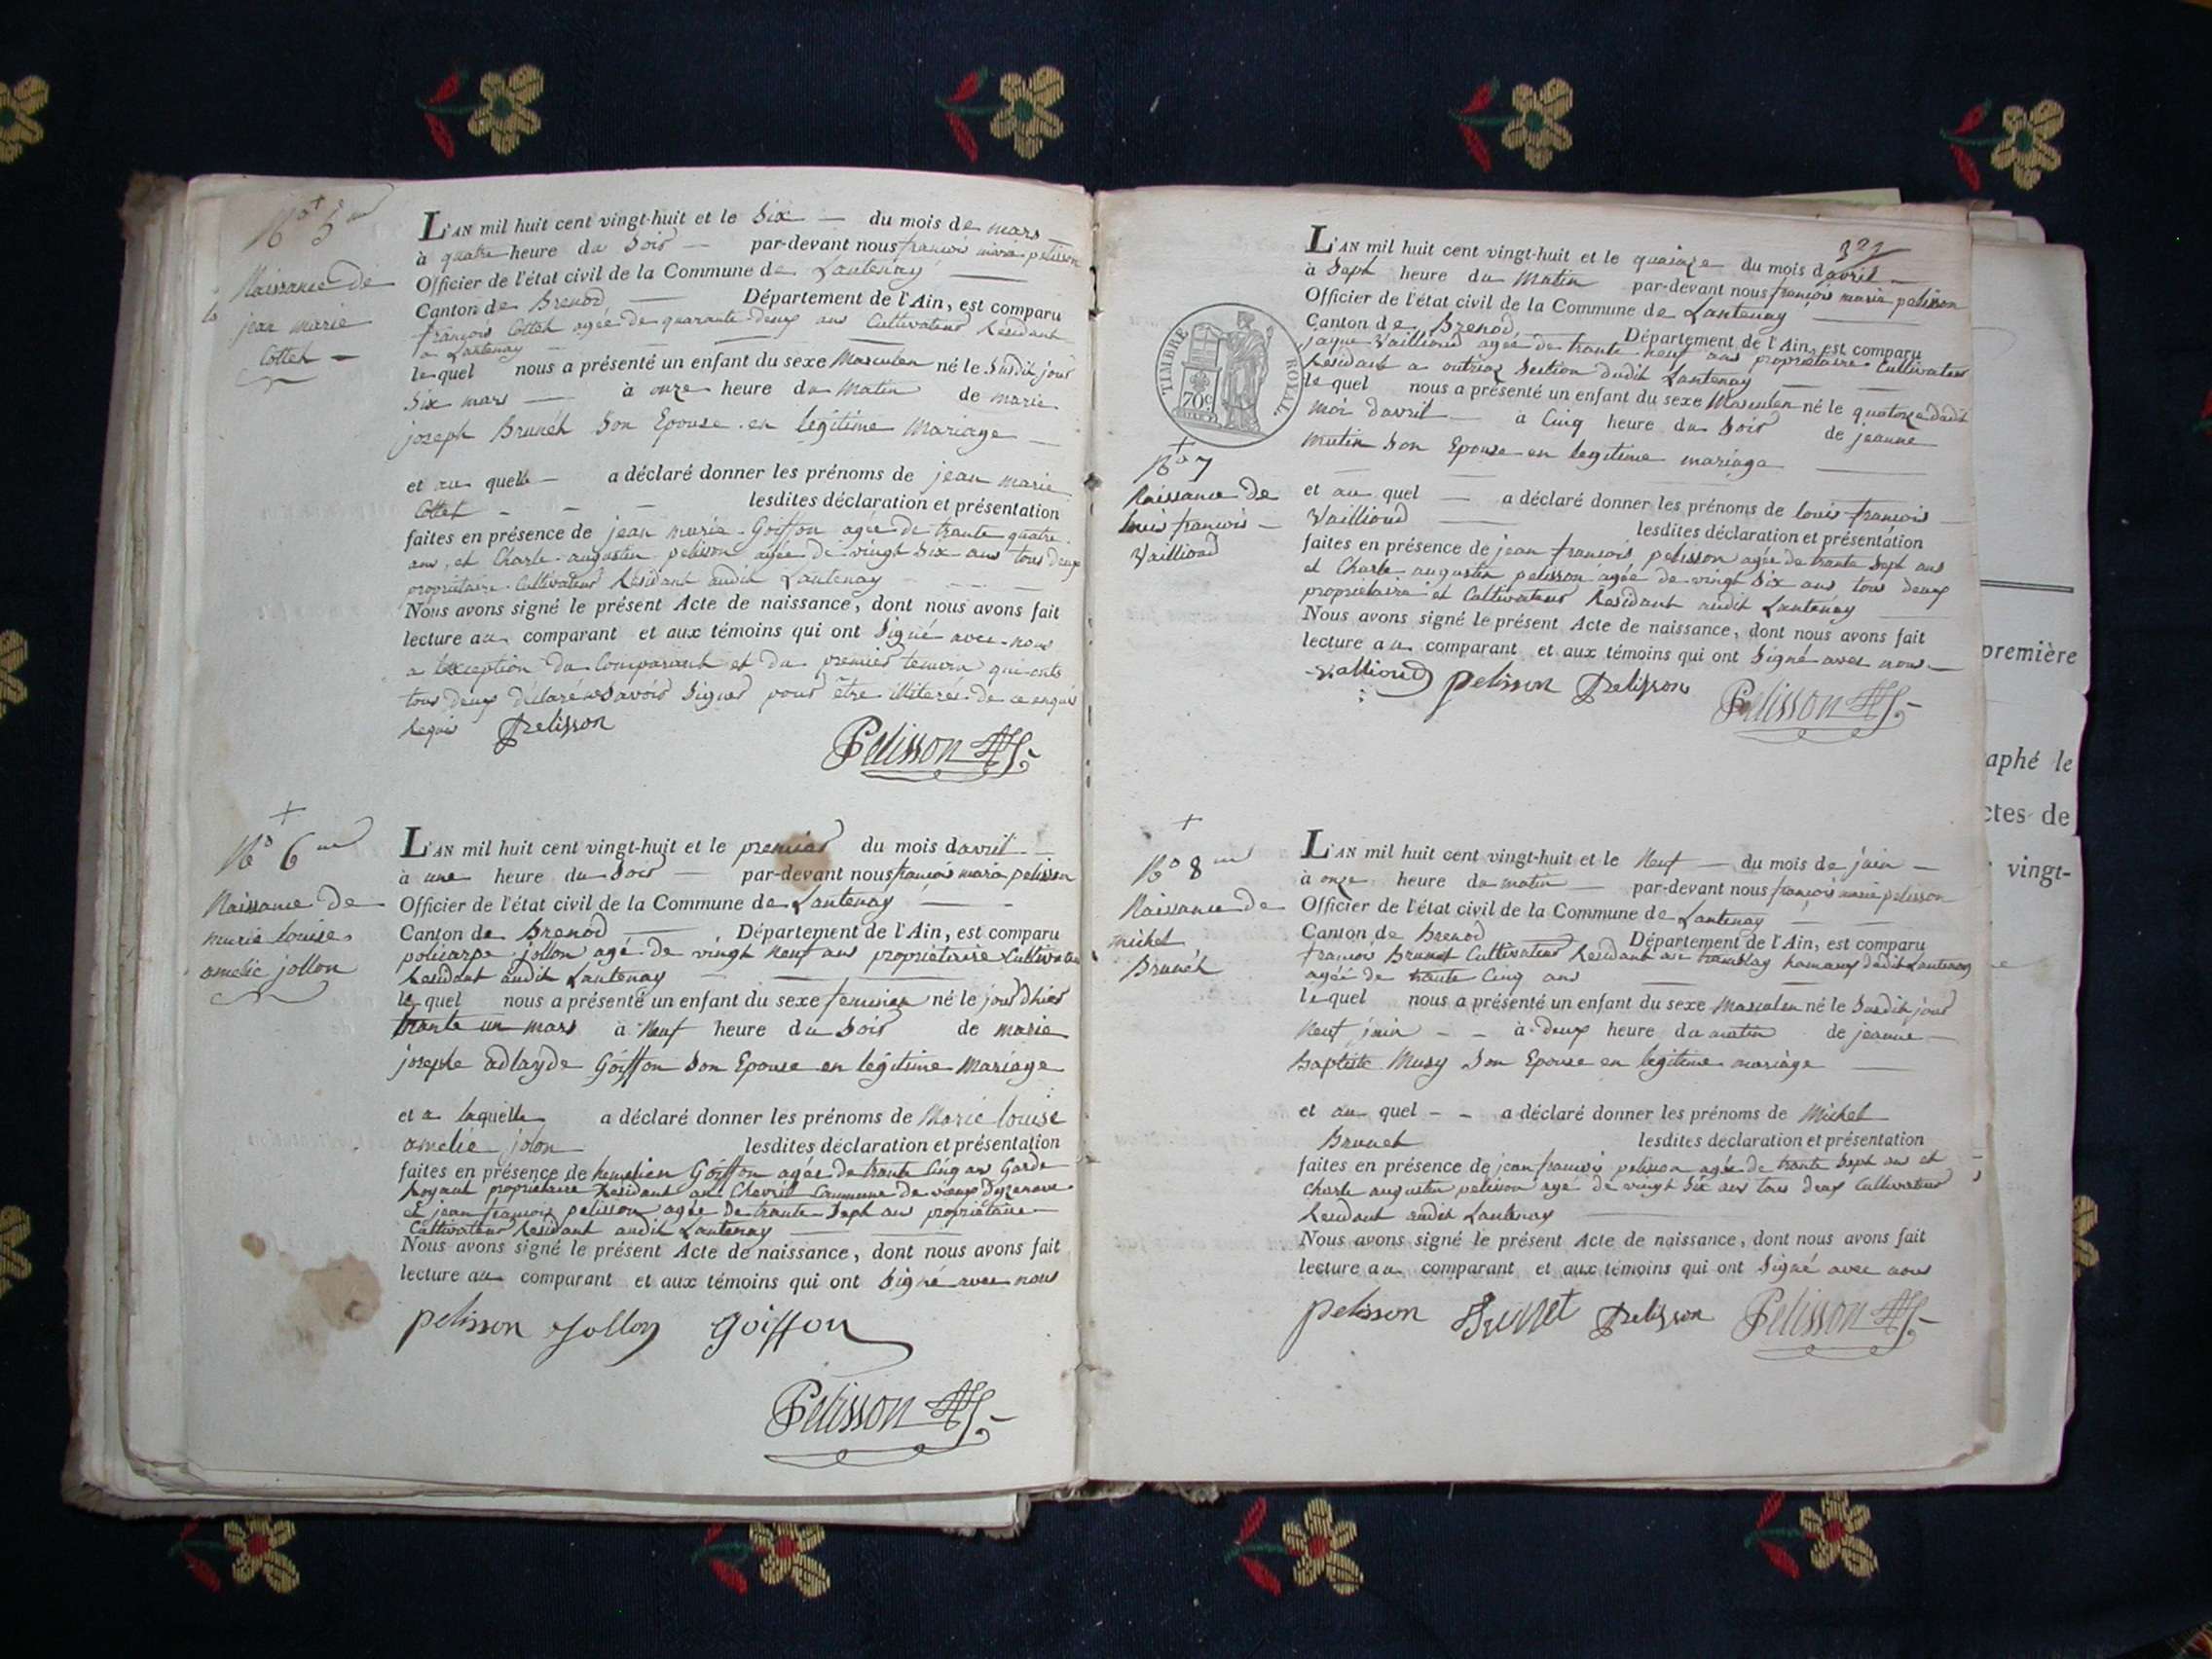 No 5me
Naissance de
jean marie
Cottet
L'AN mil huit cent vingt-huit et le Six du mois de mars
à quatre heure du Soir par-devant nous françois marie pelisson
Officier de l'état civil de la Commune de Lantenay
Canton de Brenod Département de l'Ain, est comparu
françois Cottet agée de quarante deux ans Cultivateur Residant
a Lantenay
lequel nous a présenté un enfant du sexe Masculen né le Susdit jour
Six mars à onze heure du Matin de marie
joseph Brunét Son Epouse en legitime Mariage
et au quelle a déclaré donner les prénoms de jean marie
Cottet lesdites déclaration et présentation
faites en présence de jean marie Goiffon agée de trante quatre
ans, et Charle augustin pelisson agée de vingt Six ans tous deux
propriétaire Cultivateur Residant audit Lantenay
Nous avons signé le présent Acte de naissance, dont nous avons fait
lecture au comparant et aux témoins qui ont Signé avec nous
a l'exception du Comparant et du premier temoin qui onts
tous deux déclaré Savoir Signer pour être illiterés de ce enquis
Requis Pelisson
Pelisson
No 6me
Naissance de
marie louise
amelie jollon
L'AN mil huit cent vingt-huit et le premier du mois davril
à une heure du Soir par-devant nous françois marie pelisson
Officier de l'état civil de la Commune de Lantenay
Canton de Brenod Département de l'Ain, est comparu
policarpe jollon agé de vingt Neuf ans propriétaire Cultivateur
Residant audit Lantenay
lequel nous a présenté un enfant du sexe feminien né le jour dhier
trante un mars à Neuf heure du Soir de marie
josephe adlayde Goiffon Son Epouse en legitime Mariage
et a laquelle a déclaré donner les prénoms de Marie louise
amelie jolon lesdites déclaration et présentation
faites en présence de Goiffon agée de trante Cinq ans Garde
Royaut propriétaire Residant au Chevril Commune de vieux Dyzenave
et jean françois pelisson agée de trante Sept ans propriétaire
Cultivateur Residant audit Lantenay
Nous avons signé le présent Acte de naissance, dont nous avons fait
lecture au comparant et aux témoins qui ont Signé avec nous
pelisson Jollon Goiffon
Pelisson
322
L'AN mil huit cent vingt-huit et le quainze du mois davril
à Sept heure du Matin par-devant nous françois marie pelisson
Officier de l'état civil de la Commune de Lantenay
Canton de Brenod Département de l'Ain, est comparu
jaque Vailliond agée de trante neuf ans propriétaire Cultivateur
Residant a outriaz Section dudit Lantenay
lequel nous a présenté un enfant du sexe Masculen né le quatorze dudit
moi davril à Cinq heure du Soir de jeanne
mutin Son Epouse en legitime mariage
et au quel a déclaré donner les prénoms de louis françois
Vailliond lesdites déclaration et présentation
faites en présence de jean françois pelisson agée de trante Sept ans
et Charle augustin pelisson agée de vingt Six ans tous deux
propriétaire et Cultivateur Residant audit Lantenay
Nous avons signé le présent Acte de naissance, dont nous avons fait
lecture au comparant et aux témoins qui ont Signé avec nous
Valliond pelisson Pelisson Pelisson
TIMBRE ROYAL.
70c
No 7
Naissance de
louis françois
Vailliond
No 8me
Naissance de
michel
Brunét
L'AN mil huit cent vingt-huit et le Neuf du mois de juin
à onze heure du matin par-devant nous françois marie pelisson
Officier de l'état civil de la Commune de Lantenay
Canton de Brenod Département de l'Ain, est comparu
françois Brunet Cultivateur Residant au tramblay hamaux dudit Lantenay
agée de trante Cinq ans
lequel nous a présenté un enfant du sexe Masculen né le Susdit jour
Neuf juin à deux heure du matin de jeanne
Baptiste Musy Son Epouse en legitime mariage
et au quel a déclaré donner les prénoms de Michel
Brunet lesdites déclaration et présentation
faites en présence de jean françois pelisson agée de trante Sept ans et
Charle augustin pelisson agé de vingt Six ans tous deux Cultivateur
Residant audit Lantenay
Nous avons signé le présent Acte de naissance, dont nous avons fait
lecture au comparant et aux témoins qui ont Signé avec nous
pelisson Brunet Pelisson Pelisson
première
aphé le
ctes de
vingt-